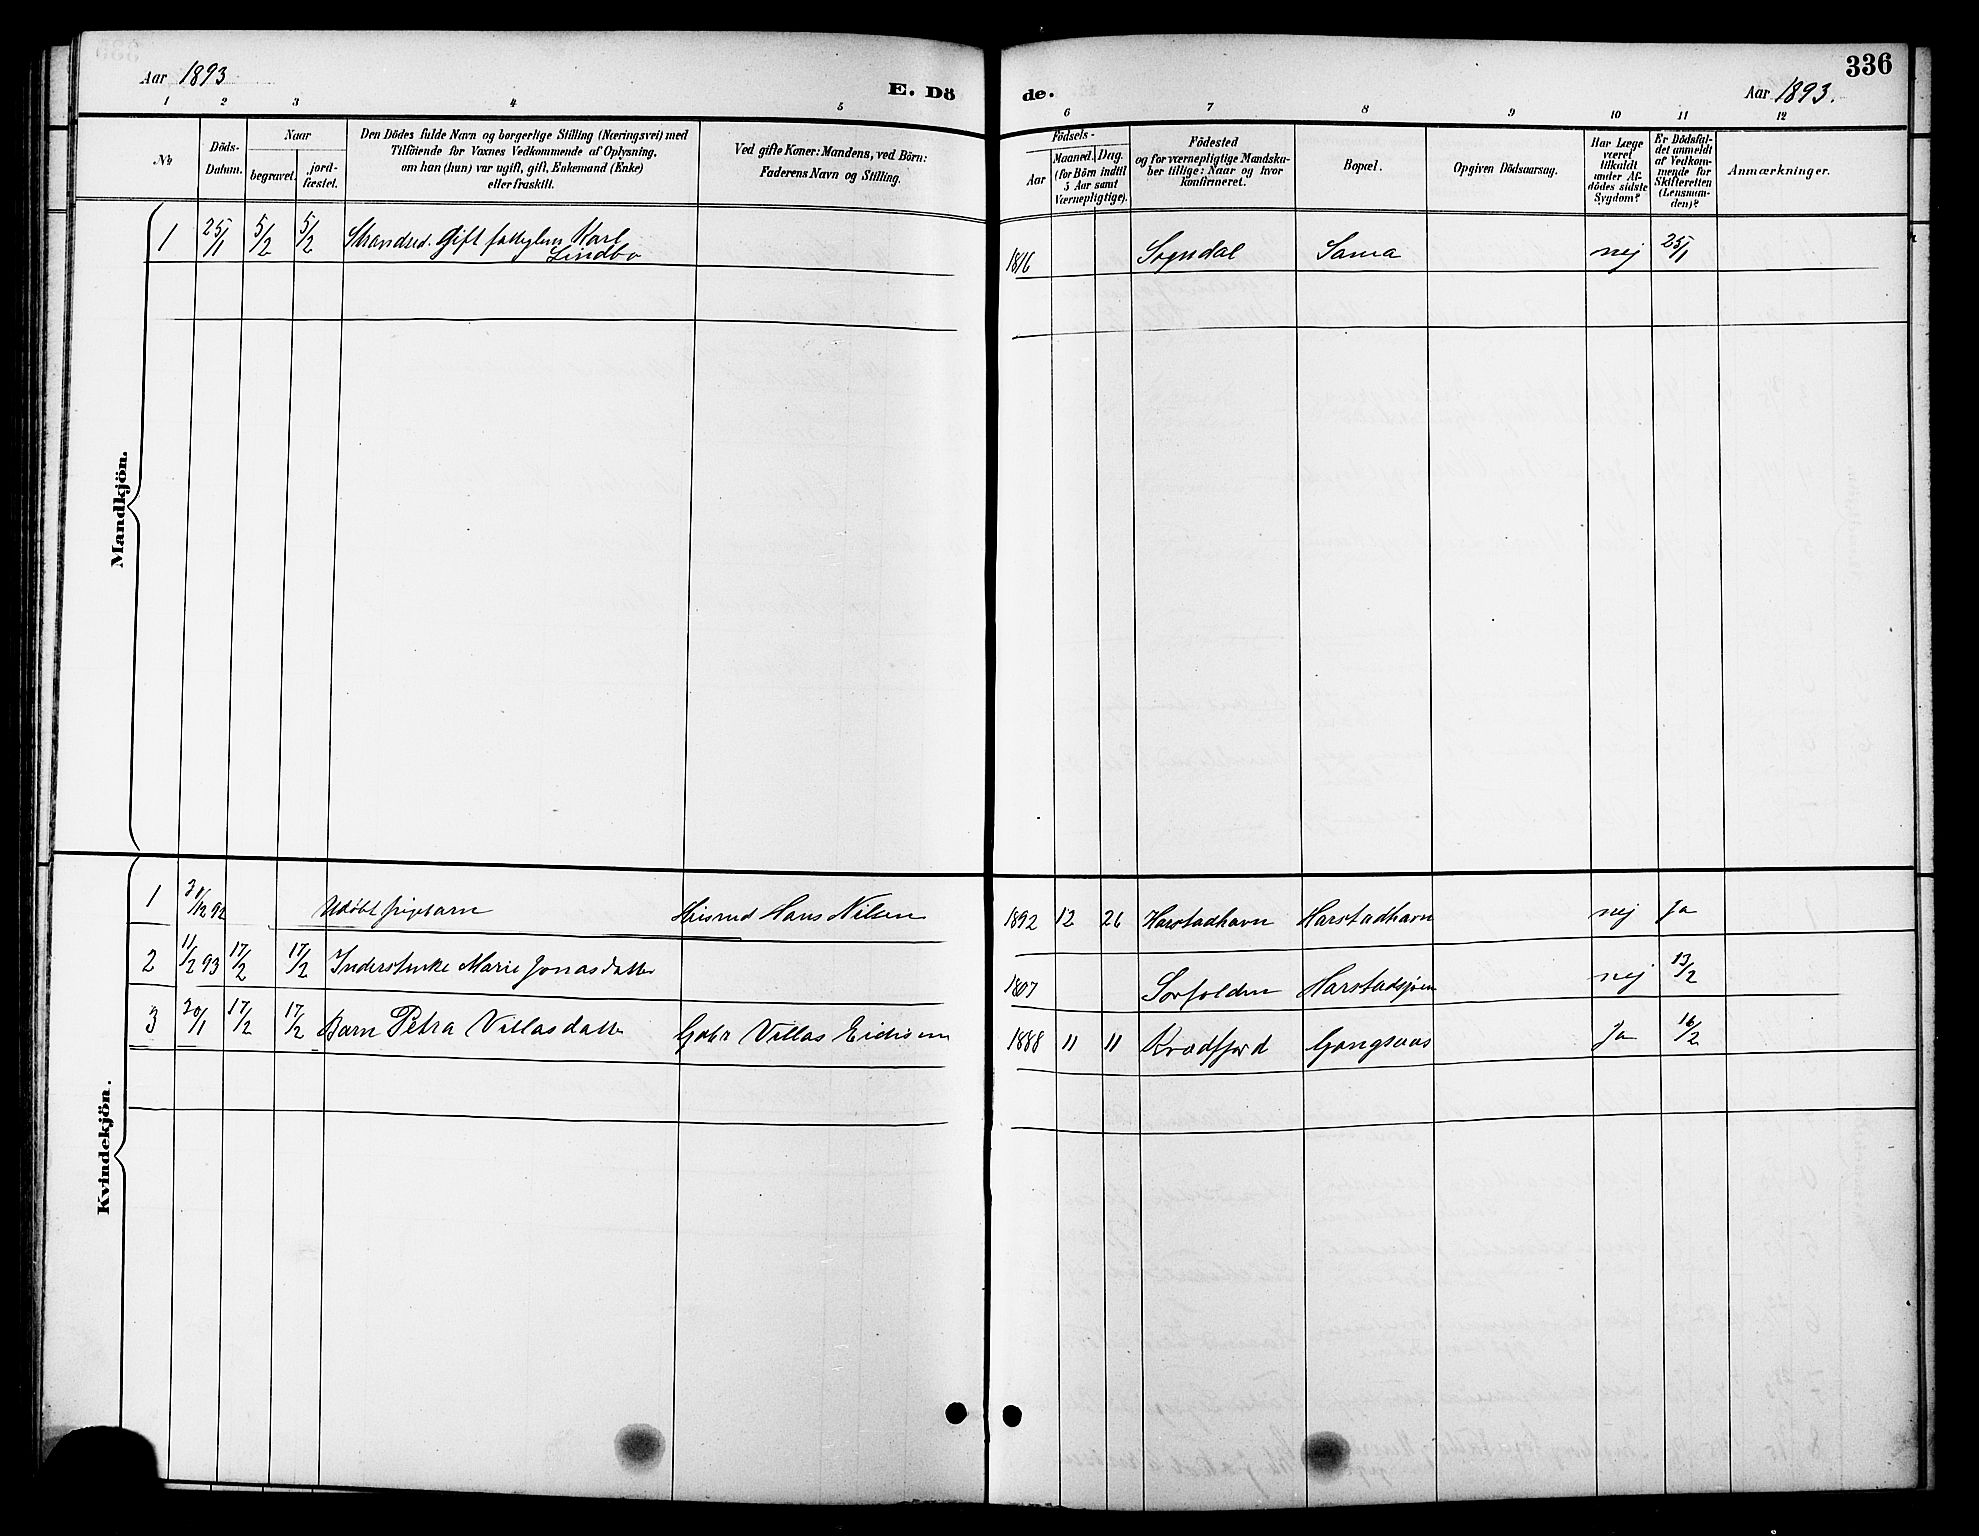 336
Aar 1893
E. Dö
de.
Aar 1893.
1 2 3 4 5 6 7 8 9 10 11 12
No
Döds-
Datum.
Naar
begravet.
jord-
fæstet.
Den Dödes fulde Navn og borgerlige Stilling (Næringsvei) med
Tilföiende for Voxnes Vedkommende af Oplysning,
om han (hun) var ugift, gift, Enkemand (Enke)
eller fraskilt.
Ved gifte Koner: Mandens, ved Börn:
Faderens Navn og Stilling.
Födsels-
Aar
Maaned.
Dag.
(for Börn indtil
5 Aar samt
Værnepligtige).
Födested
og for værnepligtige Mandska-
ber tillige: Naar og hvor
konfirmeret.
Bopæl.
Opgiven Dödsaarsag.
Har Læge
været
tilkaldt
under Af-
dödes sidste
Sygdom?
Er Dödsfal-
det anmeldt
af Vedkom-
mende for
Skifteretten
(Lensman-
den)?
Anmærkninger.
Mandkjön.
1 25/1 5/2 5/2 Strandsd. Gift Karl
Lindbo
1816 Sogndal Sama nej 25/1
Kvindekjön.
1 92 Udöbt pigebarn Hans Nilsen 1892 12 26 Harstadhavn Harstadhavn nej Ja
2 11/2 93 17/2 17/2 Marie Jonasdatter 1807 Sørfolden nej 13/2
3 17/2 17/2 Barn Petra Villasdatter Villas 1888 11 11 Kvædfjord Gangsaas Ja 16/2